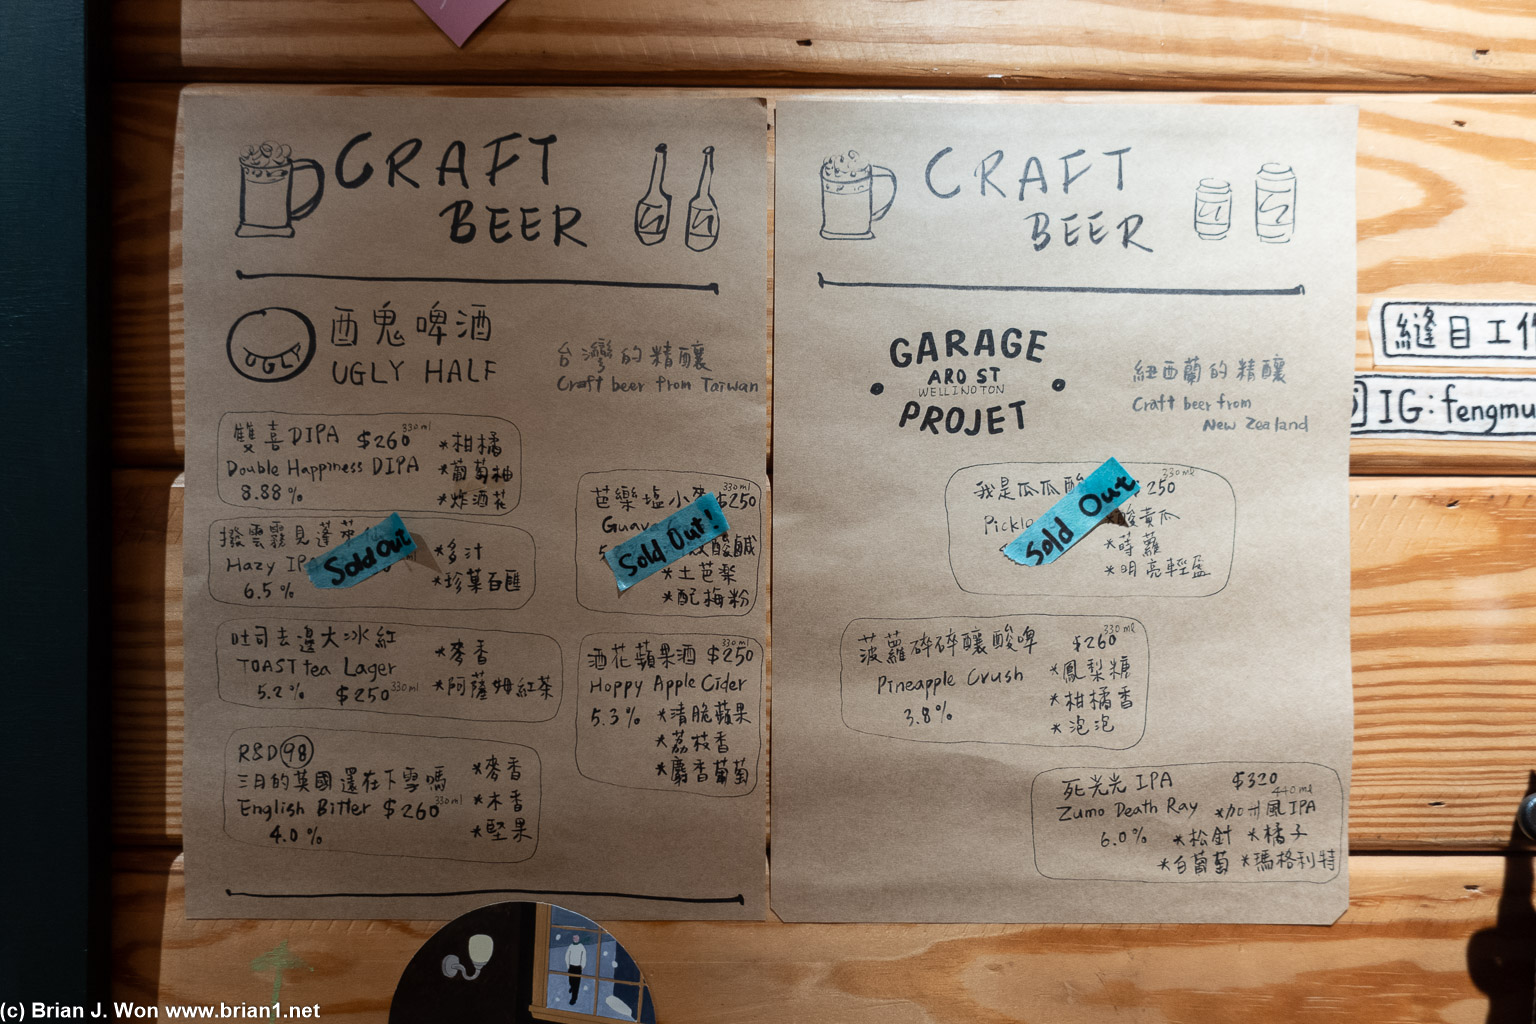 CRAFT
BEER
UGLY
酉鬼啤酒
UGLY HALF
台灣的精釀
Craft beer from Taiwan
雙喜DIPA $260 330ml
Double Happiness DIPA
8.88%
*柑橘
*葡萄柚
*炸酒花
撥雲霧見蓬萊
Hazy IPA
6.5%
Sold Out
*多汁
*珍菓百匯
吐司去邊大冰紅
TOAST tea Lager
5.2% $250 330ml
*麥香
*阿薩姆紅茶
R&D 98
三月的英國還在下雪嗎
English Bitter $260 330ml
4.0%
*麥香
*木香
*堅果
芭樂塩小麥 $250 330ml
Guava
5
Sold Out!
酸鹹
*土芭樂
*配梅粉
酒花蘋果酒 $250 330ml
Hoppy Apple Cider
5.3% *清脆蘋果
*荔枝香
*麝香葡萄
CRAFT
BEER
GARAGE
ARO ST
WELLINGTON
PROJET
紐西蘭的精釀
Craft beer from
New Zealand
我是瓜瓜酸 $250 330ml
Pickle
Sold Out
*酸黃瓜
*蒔蘿
*明亮輕盈
菠蘿碎碎釀酸啤 $260 330ml
Pineapple Crush
3.8%
*鳳梨糖
*柑橘香
*泡泡
死光光IPA $320
440ml
Zumo Death Ray *加州風IPA
6.0% *松針 *橘子
*白葡萄 *瑪格利特
縫目工作
IG:fengmu
(c) Brian J. Won www.brian1.net